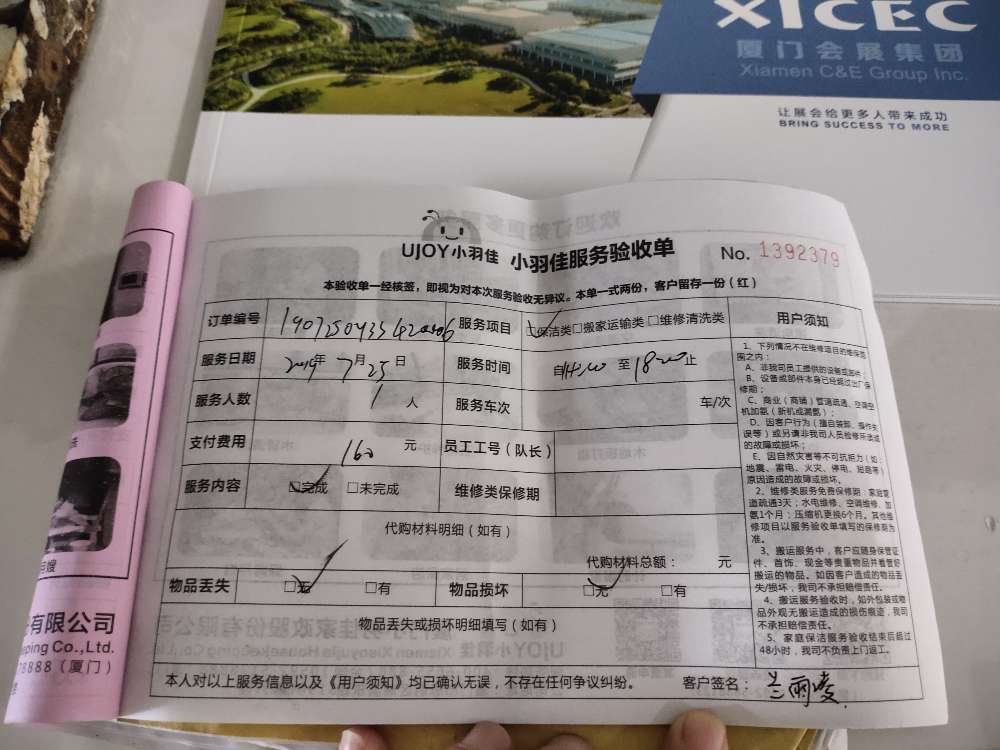 XICEC
厦门会展集团
Xiamen C&E Group Inc.
让展会给更多人带来成功
BRING SUCCESS TO MORE
UJOY小羽佳 小羽佳服务验收单 No. 1392379
本验收单一经核签，即视为对本次服务验收无异议。本单一式两份，客户留存一份（红）
订单编号 服务项目 保洁类□搬家运输类□维修清洗类 用户须知
服务日期 2019年 7月25日 服务时间 自 至 18:00止
服务人数 1 人 服务车次 车/次
支付费用 160 元 员工工号（队长）
服务内容 完成 □未完成 维修类保修期
代购材料明细（如有）
代购材料总额： 元
物品丢失 □无 □有 物品损坏 □无 □有
物品丢失或损坏明细填写（如有）
本人对以上服务信息以及《用户须知》均已确认无误，不存在任何争议纠纷。 客户签名： 兰丽凌
1、下列情况不在维修项目的维保范
围之内：
A、非我司员工提供的设备或部件；
B、设备或部件本身已经超过出厂保
修期；
C、商业（商铺）管道疏通、空调空
机加氨（新机或漏氨）；
D、因客户行为（擅自装卸、操作失
误等）或另请非我司人员检修所造成
的故障或损坏；
E、因自然灾害等不可抗拒力（如：
地震、雷电、火灾、停电、短路等）
原因造成的故障或损坏。
2、维修类服务免费保修期：家庭管
道疏通3天；水电维修、空调维修、加
氨1个月；压缩机更换6个月。其他维
修项目以服务验收单填写的保修期为
准。
3、搬运服务中，客户应随身保管证
件、首饰、现金等贵重物品并看管好
搬运的物品。如因客户造成的物品丢
失/损坏，我司不承担赔偿责任。
4、搬运服务验收时，如外包装或物
品外观无搬运造成的损伤痕迹，我司
不承担赔偿责任。
5、家庭保洁服务验收结束后超过
48小时，我司不负责上门返工。
有限公司
ping Co.,Ltd.
78888（厦门）